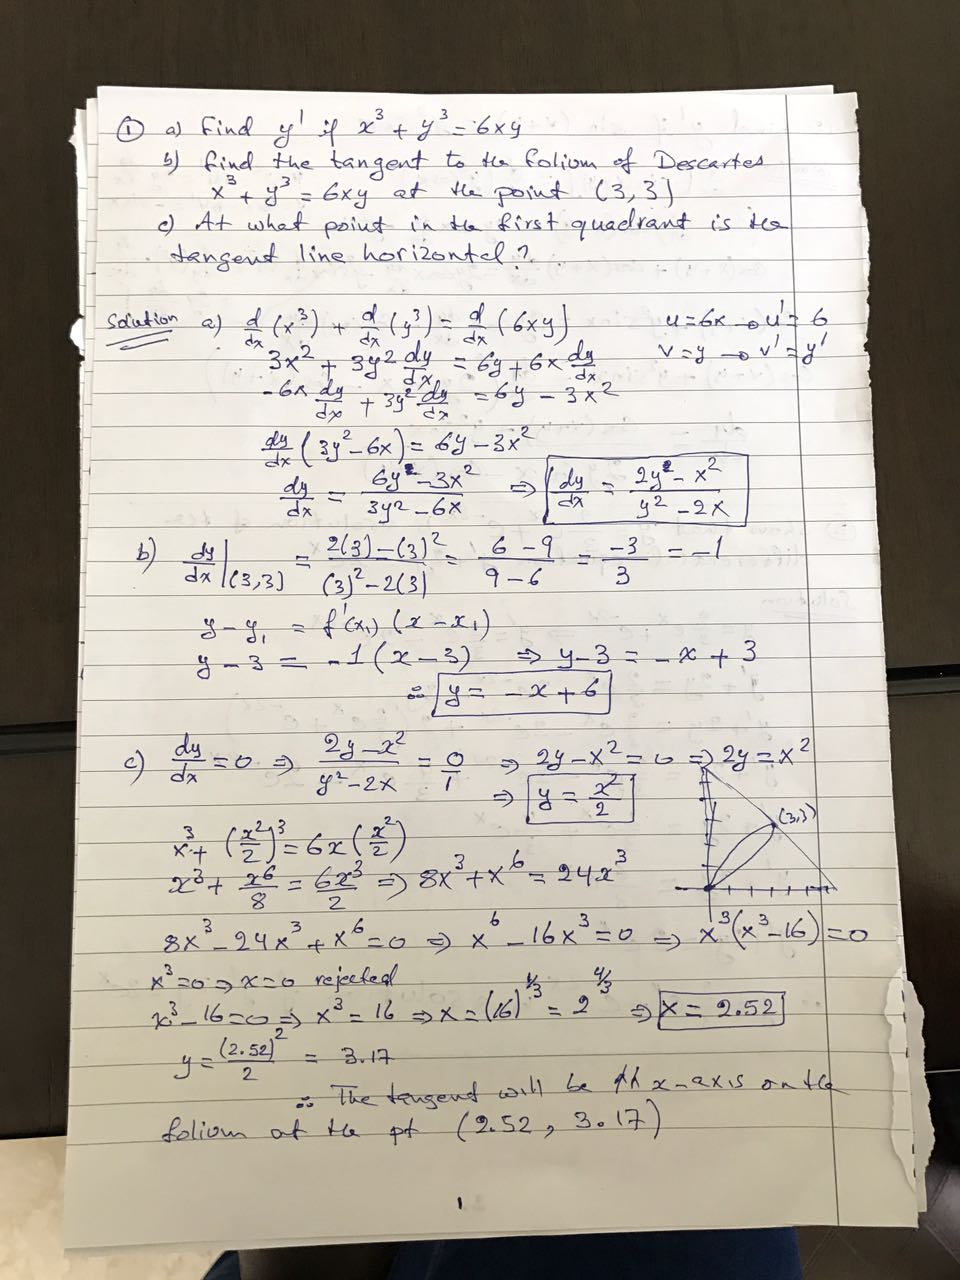 ① a) Find y' if x³ + y³ = 6xy
b) find the tangent to the folium of Descartes
x³ + y³ = 6xy at the point (3,3)
c) At what point in the first quadrant is the
tangent line horizontal?
Solution a) d/dx (x³) + d/dx (y³) = d/dx (6xy) u = 6x → u' = 6
3x² + 3y² dy/dx = 6y + 6x dy/dx v = y → v' = y'
-6x dy/dx + 3y² dy/dx = 6y - 3x²
dy/dx (3y² - 6x) = 6y - 3x²
dy/dx = (6y - 3x²)/(3y² - 6x) ⇒ dy/dx = (2y - x²)/(y² - 2x)
b) dy/dx |(3,3) = (2(3) - (3)²)/((3)² - 2(3)) = (6 - 9)/(9 - 6) = -3/3 = -1
y - y₁ = f'(x₁) (x - x₁)
y - 3 = -1 (x - 3) ⇒ y - 3 = -x + 3
∴ y = -x + 6
c) dy/dx = 0 ⇒ (2y - x²)/(y² - 2x) = 0/1 ⇒ 2y - x² = 0 ⇒ 2y = x²
⇒ y = x²/2
(3,3)
x³ + (x²/2)³ = 6x (x²/2)
x³ + x⁶/8 = 6x³/2 ⇒ 8x³ + x⁶ = 24x³
8x³ - 24x³ + x⁶ = 0 ⇒ x⁶ - 16x³ = 0 ⇒ x³(x³ - 16) = 0
x³ = 0 ⇒ x = 0 rejected
x³ - 16 = 0 ⇒ x³ = 16 ⇒ x = (16)^1/3 = 2^4/3 ⇒ x = 2.52
y = (2.52)²/2 = 3.17
∴ The tangent will be // x-axis on the
folium at the pt (2.52, 3.17)
1